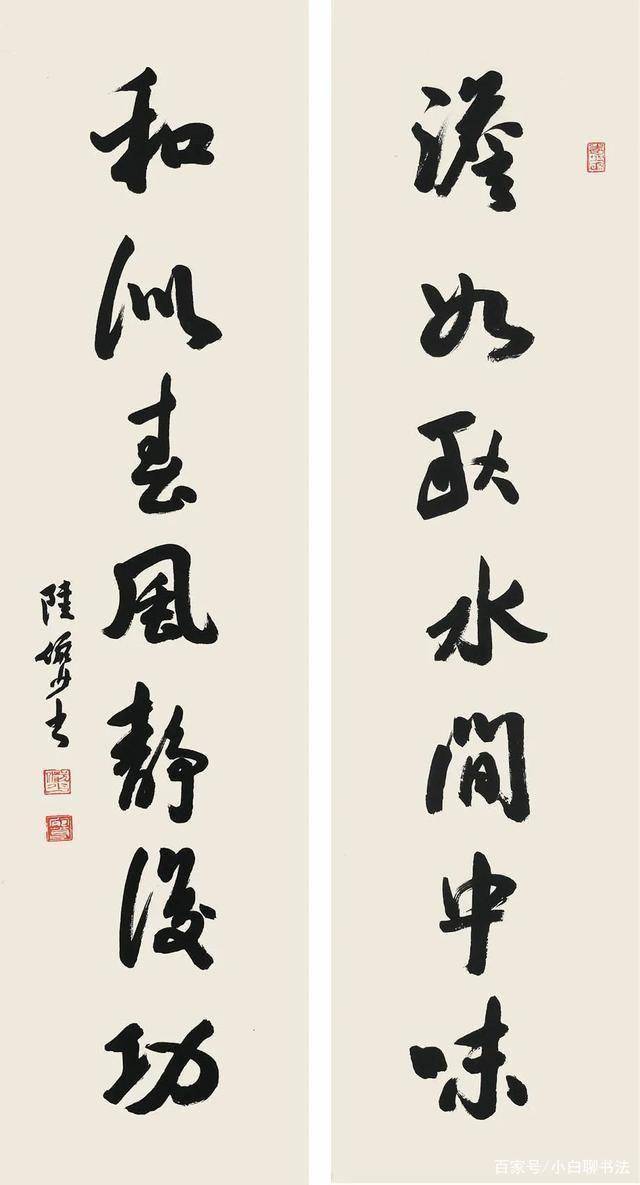 澹如秋水閒中味
和似春風靜後功
陸儼少書
百家号/小白聊书法